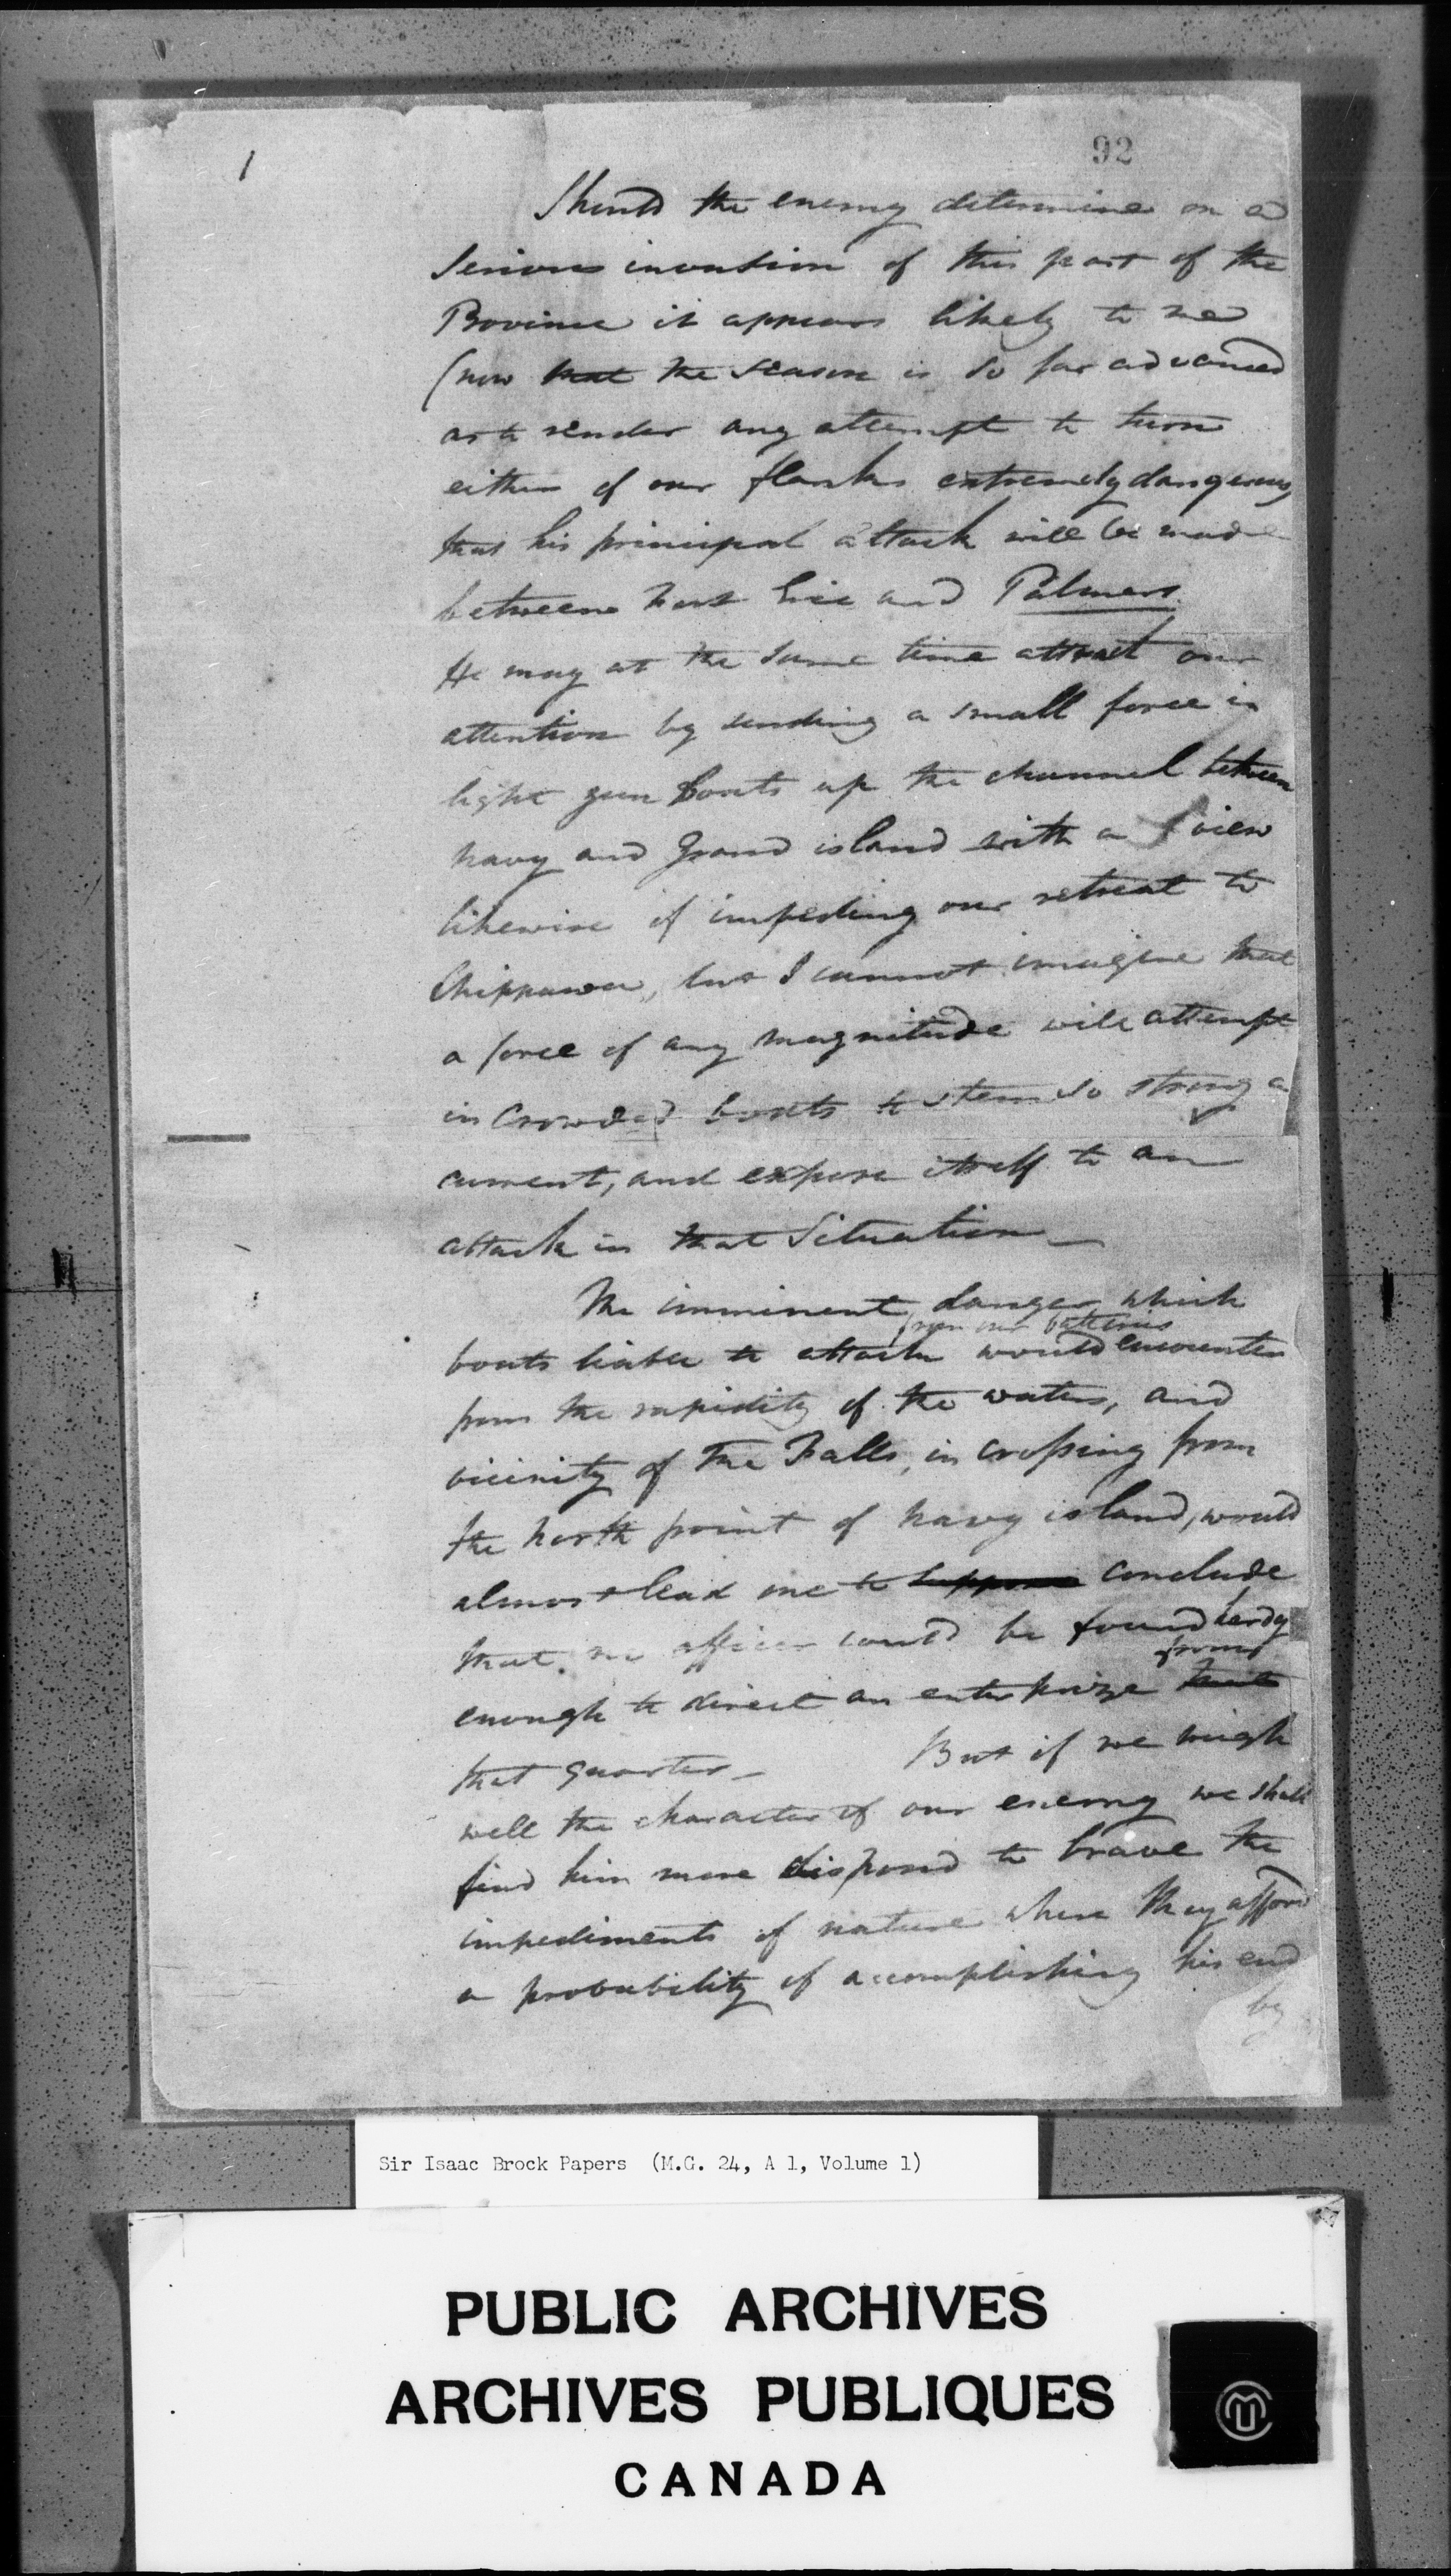 1
92
Should the enemy determine on a
serious invasion of this part of the
Province it appears likely to me
(now that the season is so far advanced
as to render any attempt to turn
either of our flanks extremely dangerous
that his principal attack will be made
between Fort Erie and Palmers
He may at the same time attract our
attention by sending a small force in
light gun boats up the channel between
navy and Grand island with a view
likewise of impeding our retreat to
Chippawa, but I cannot imagine that
a force of any magnitude will attempt
in Crowded boats to stem so strong a
current, and expose itself to an
attack in that situation—
The imminent danger which
from our batteries
boats liable to attack would encounter
from the rapidity of the waters, and
vicinity of the Falls, in crossing from
the north point of navy island, would
almost lead me to suppose conclude
that no officer could be found hardy
from
enough to direct an enterprize
that quarter— But if we weigh
well the character of our enemy we shall
find him more disposed to brave the
impediments of nature when they afford
a probability of accomplishing his end
by
Sir Isaac Brock Papers (M.G. 24, A 1, Volume 1)
PUBLIC ARCHIVES
ARCHIVES PUBLIQUES
CANADA